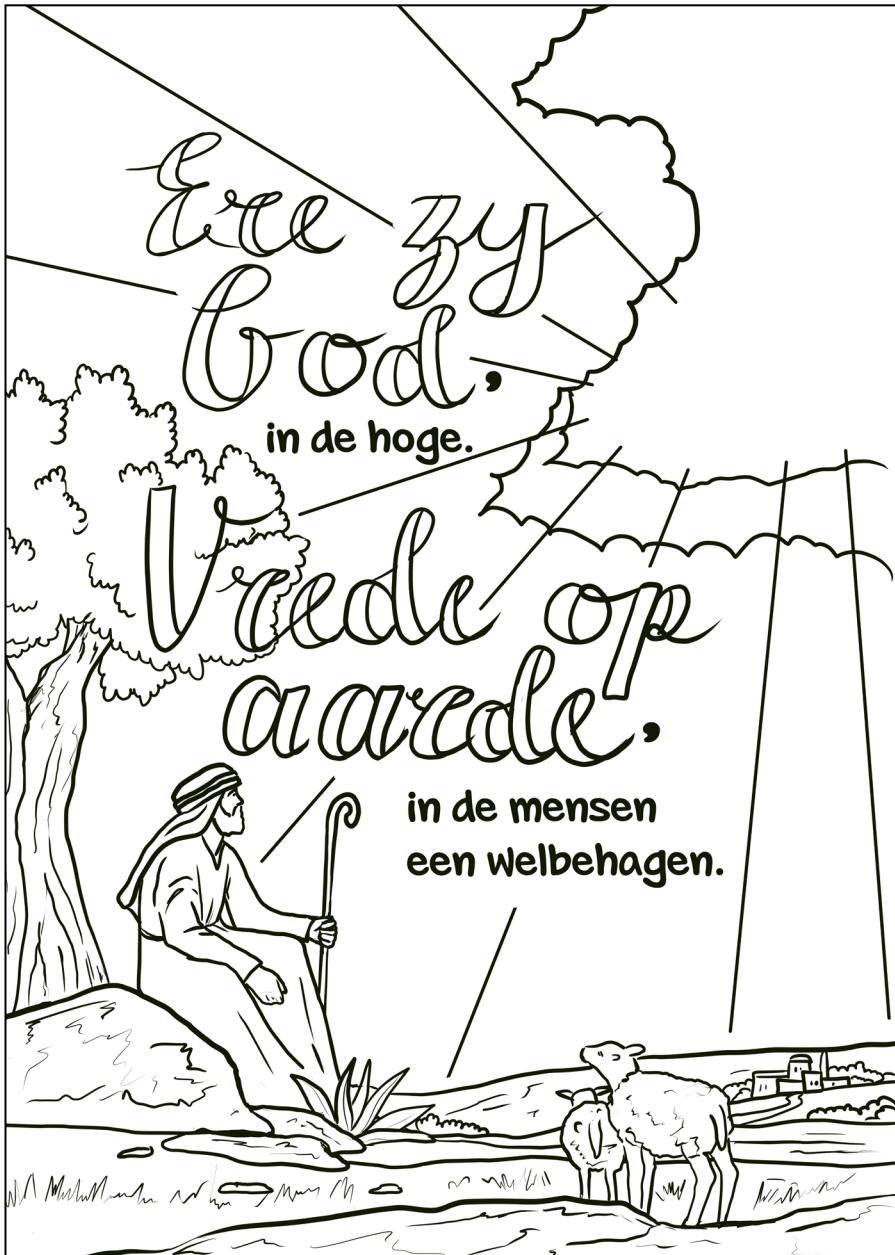 Ere zy
God,
in de hoge.
Vrede op
aarde,
in de mensen
een welbehagen.